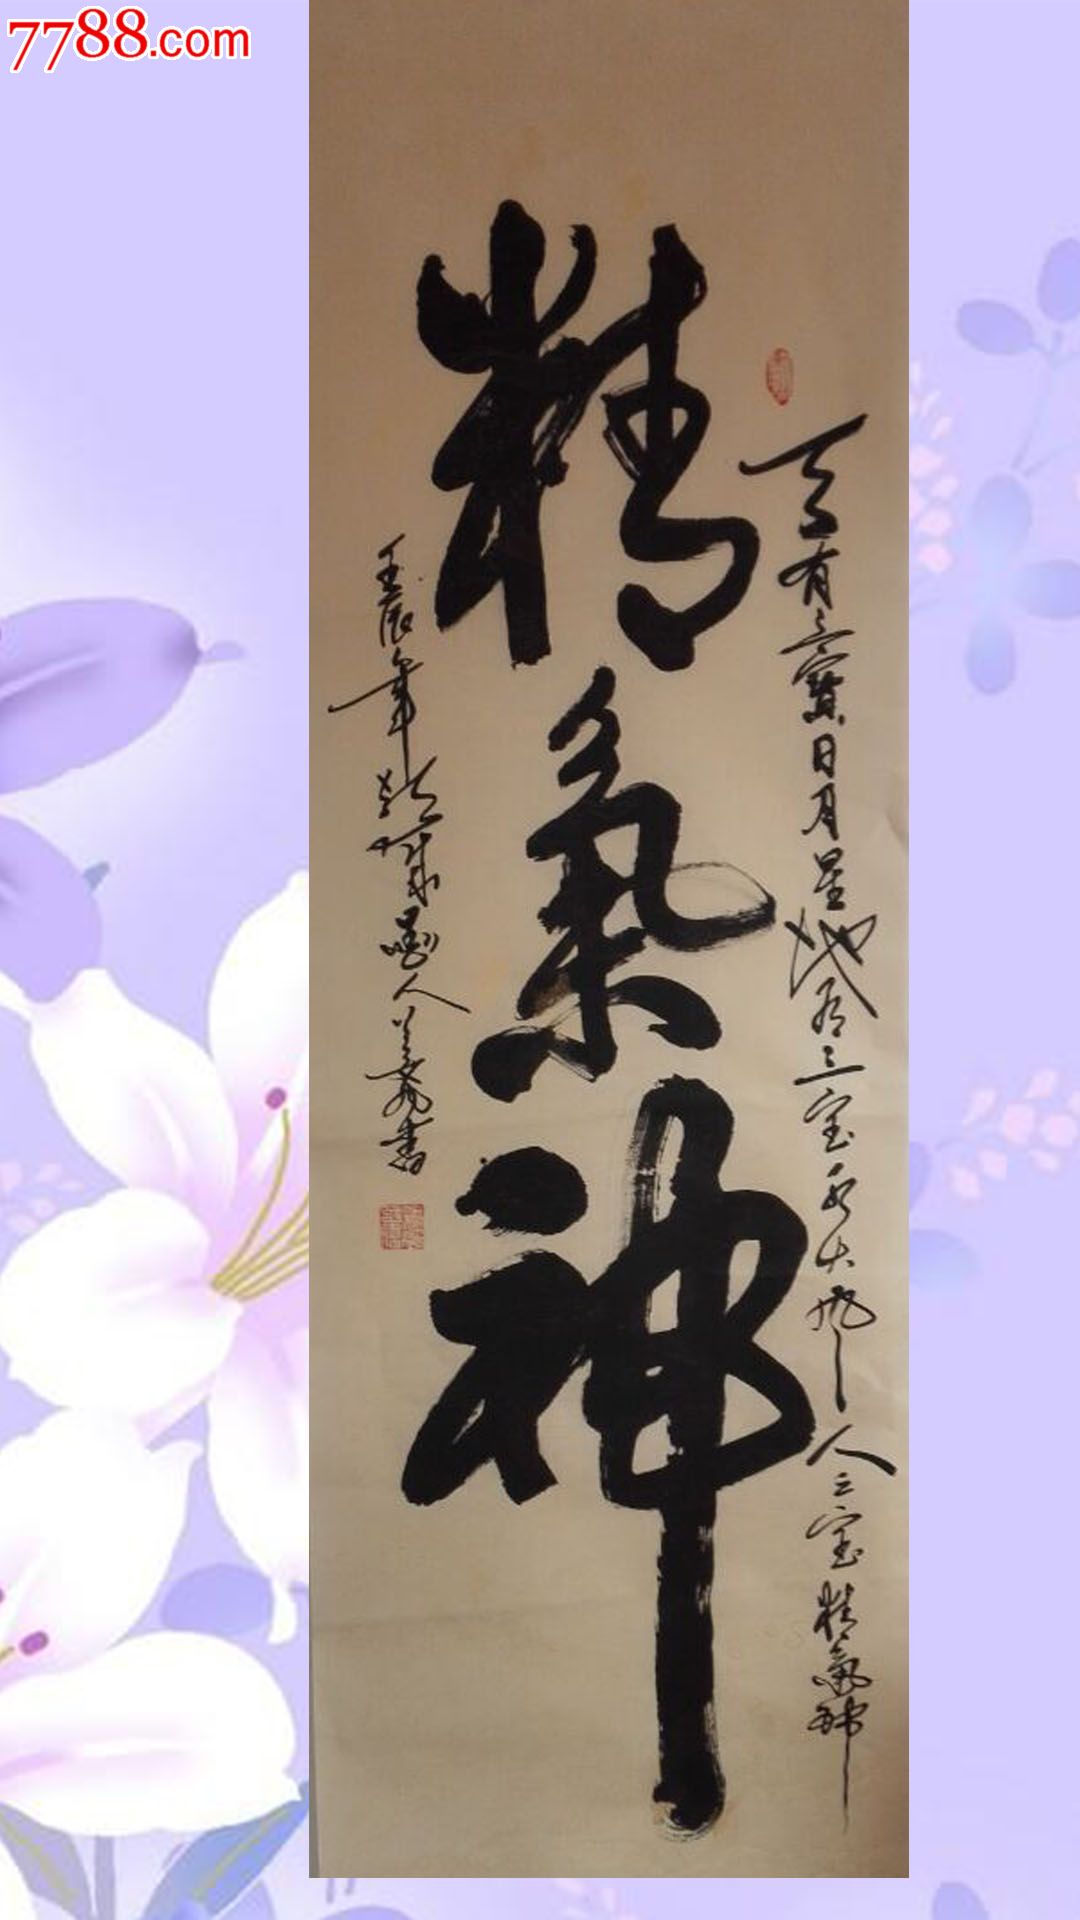 7788.com
精氣神
天有三寶日月星地有三宝水火风人三宝精氣神
壬辰年
人
书